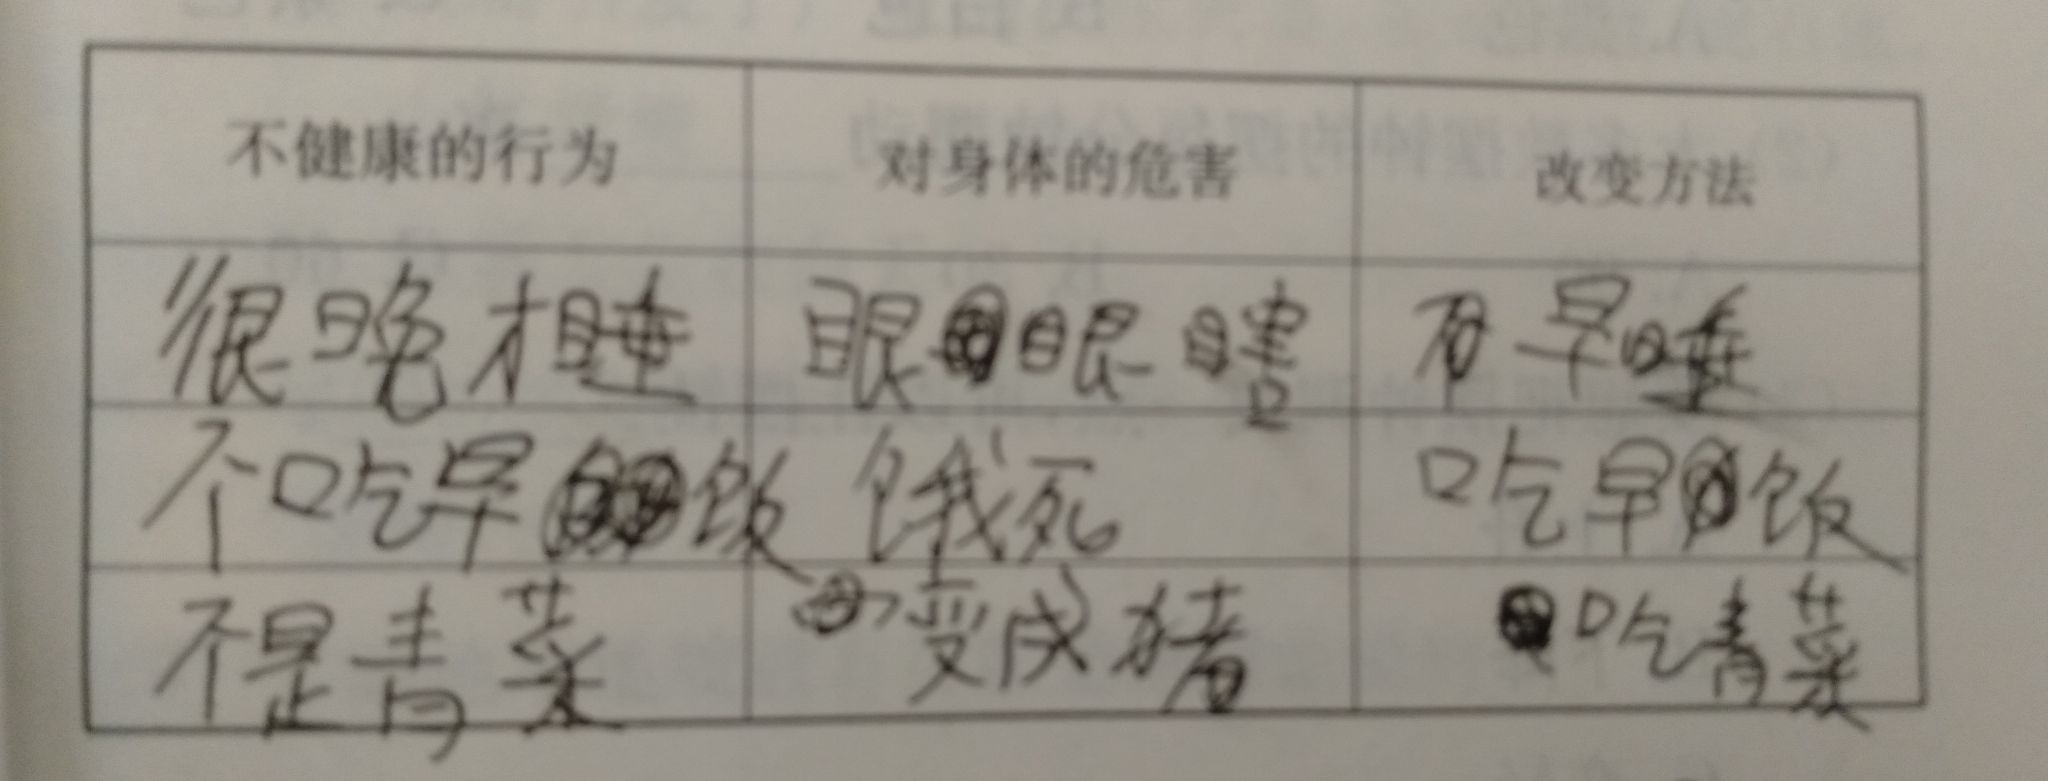 不健康的行为 对身体的危害 改变方法
很晚才睡 眼眼瞎 早睡
不吃早饭 饿死 吃早饭
不是青菜 变成猪 吃青菜